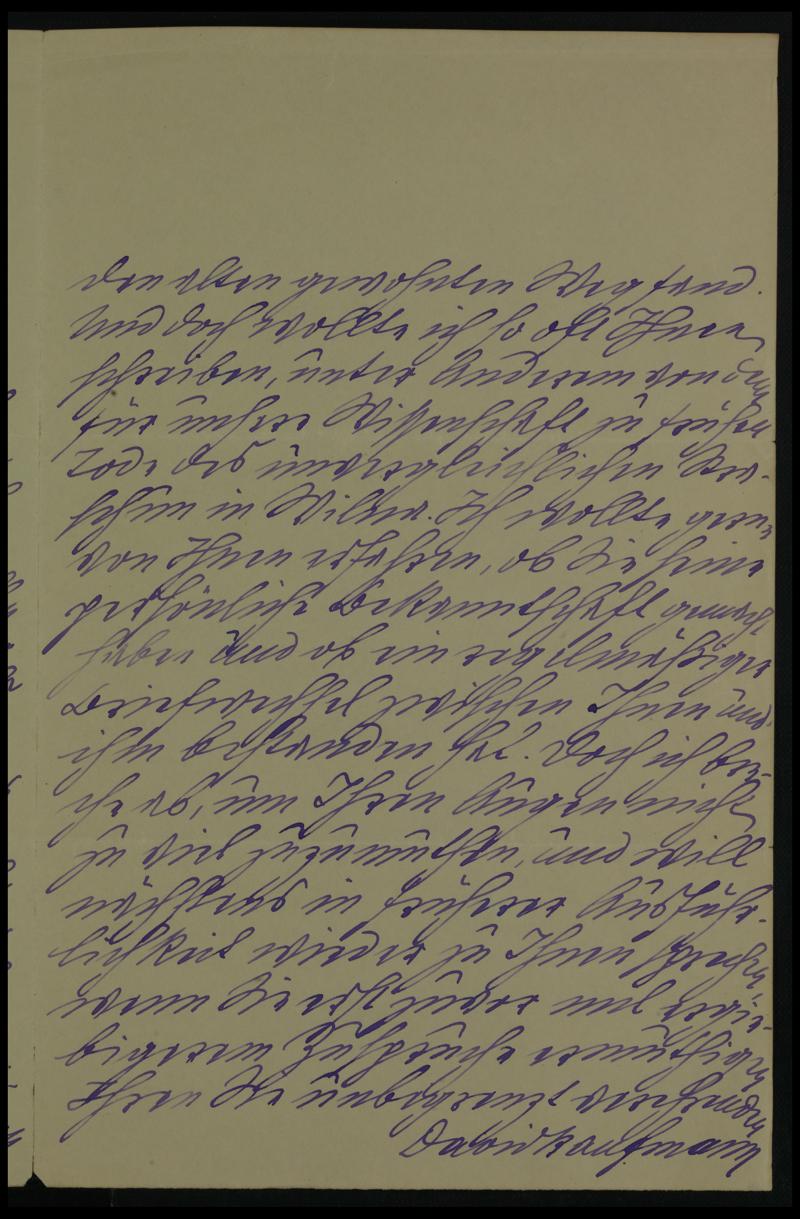 den alten gewohnten Weg fand.
Und doch wollte ich so oft Ihnen
schreiben, unter Anderem von dem
für unsere Wissenschaft zu frühen
Tode des unvergleichlichen
in Wilna. Ich wollte gerne
von Ihnen erfahren, ob Sie seine
persönliche Bekanntschaft gemacht
haben und ob ein regelmäßiger
Briefwechsel zwischen Ihnen und
ihm bestanden hat. Doch ich bre-
che ab, um Ihren Augen nicht
zu viel zuzumuthen, und will
nächstens in früherer Ausführ-
lichkeit wieder zu Ihnen sprechen
wenn Sie erst zuvor mit ergie-
bigerem Zuspruche ermuthigen
Ihren Sie unbegrenzt verehrenden
David Kaufmann